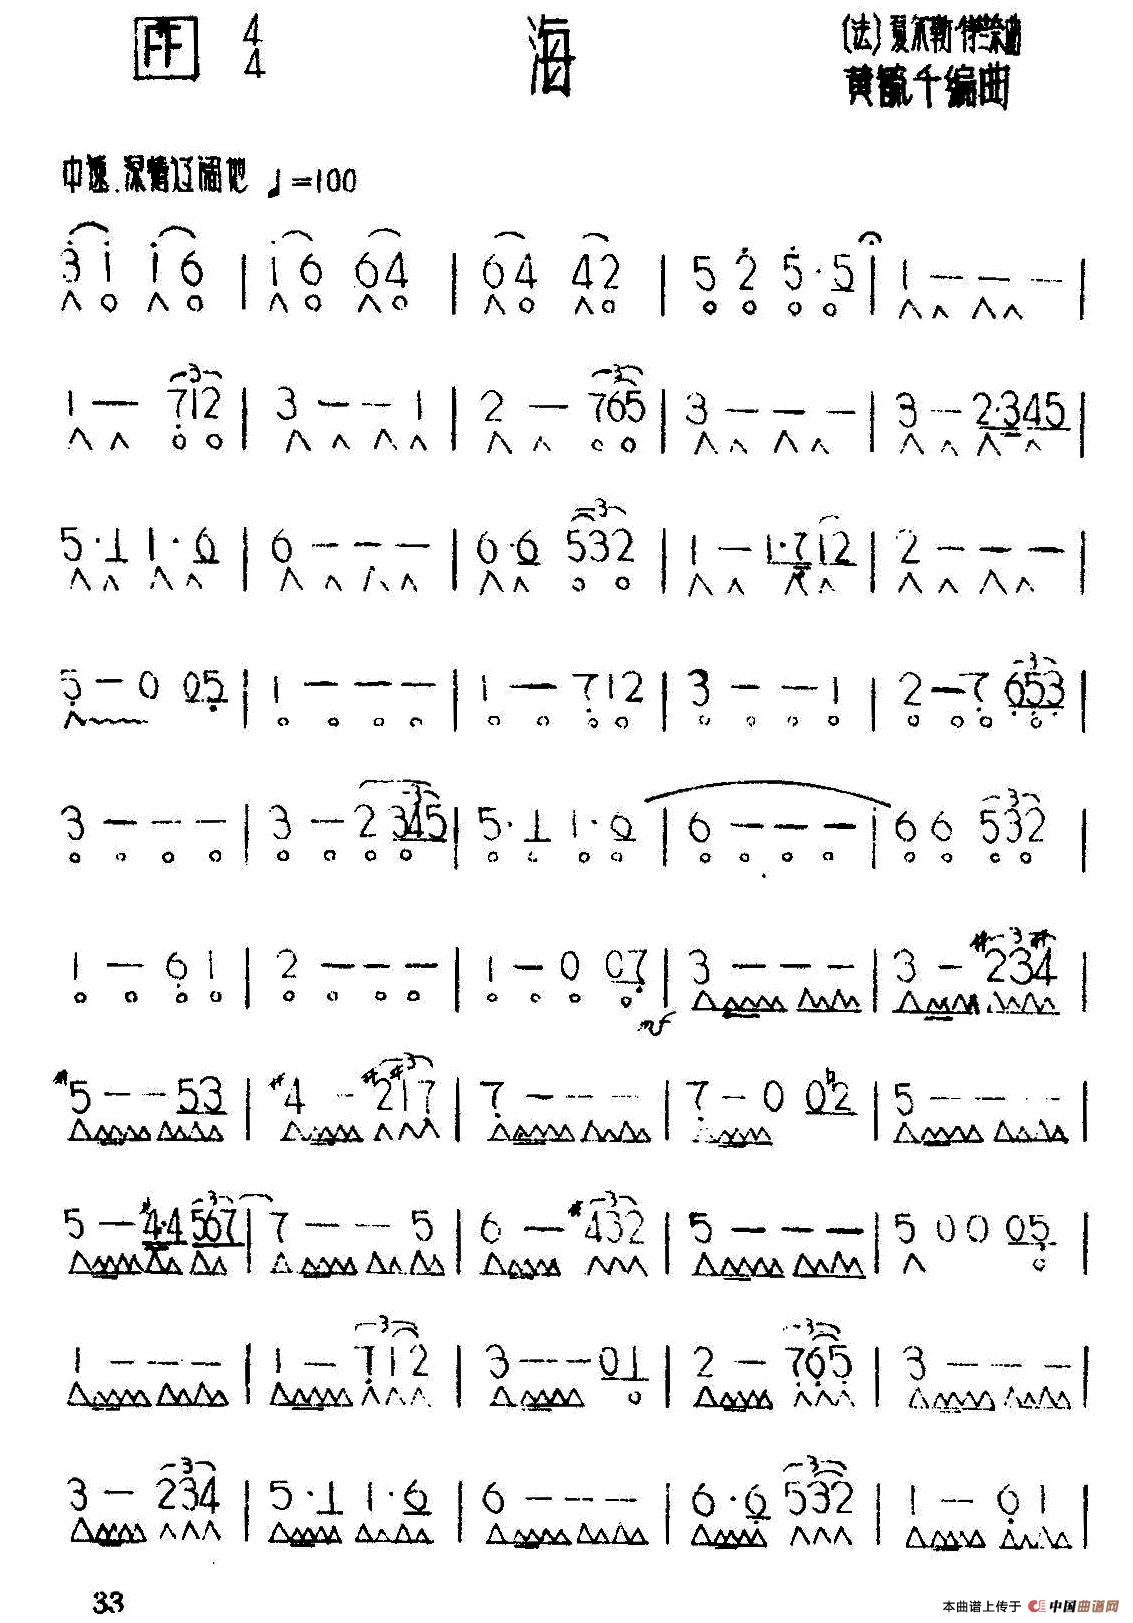 4
4
海
(法)夏尔勒·
黄毓千编曲
中速.深情辽阔地 ♩=100
3 1 1 6 | 1 6 6 4 | 6 4 4 2 | 5 2 5·5 | 1 — — — |
1 — 712 | 3 — — 1 | 2 — 765 | 3 — — — | 3 — 2·345 |
5·1 1·6 | 6 — — — | 6·6 532 | 1 — 1·712 | 2 — — — |
5 — 0 05 | 1 — — — | 1 — 712 | 3 — — 1 | 2 — 7 653 |
3 — — — | 3 — 2 345 | 5·1 1·6 | 6 — — — | 6 6 532 |
1 — 6 1 | 2 — — — | 1 — 0 07 | 3 — — — | 3 — #23#4 |
mf
#5 — — 53 | #4 — #2#17 | 7 — — — | 7 — 0 0♮2 | 5 — — — |
5 — #4·4 567 | 7 — — 5 | 6 — #432 | 5 — — — | 5 0 0 05 |
1 — — — | 1 — 712 | 3 — — 01 | 2 — 765 | 3 — — — |
3 — 234 | 5·1 1·6 | 6 — — — | 6·6 532 | 1 — 6 1 |
33
本曲谱上传于 中国曲谱网